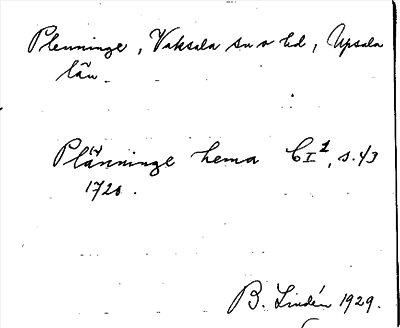 Plenninge, Vaksala sn o hd, Upsala
län.
Plänninge hema CI², s. 43
1720.
B. Lindén 1929.